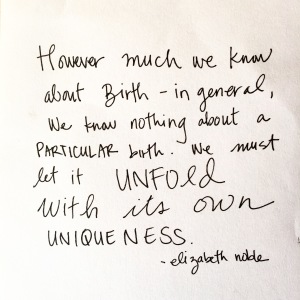 However much we know
about Birth - in general,
We know nothing about a
PARTICULAR birth. We must
let it UNFOLD
With its own
UNIQUENESS.
- elizabeth noble